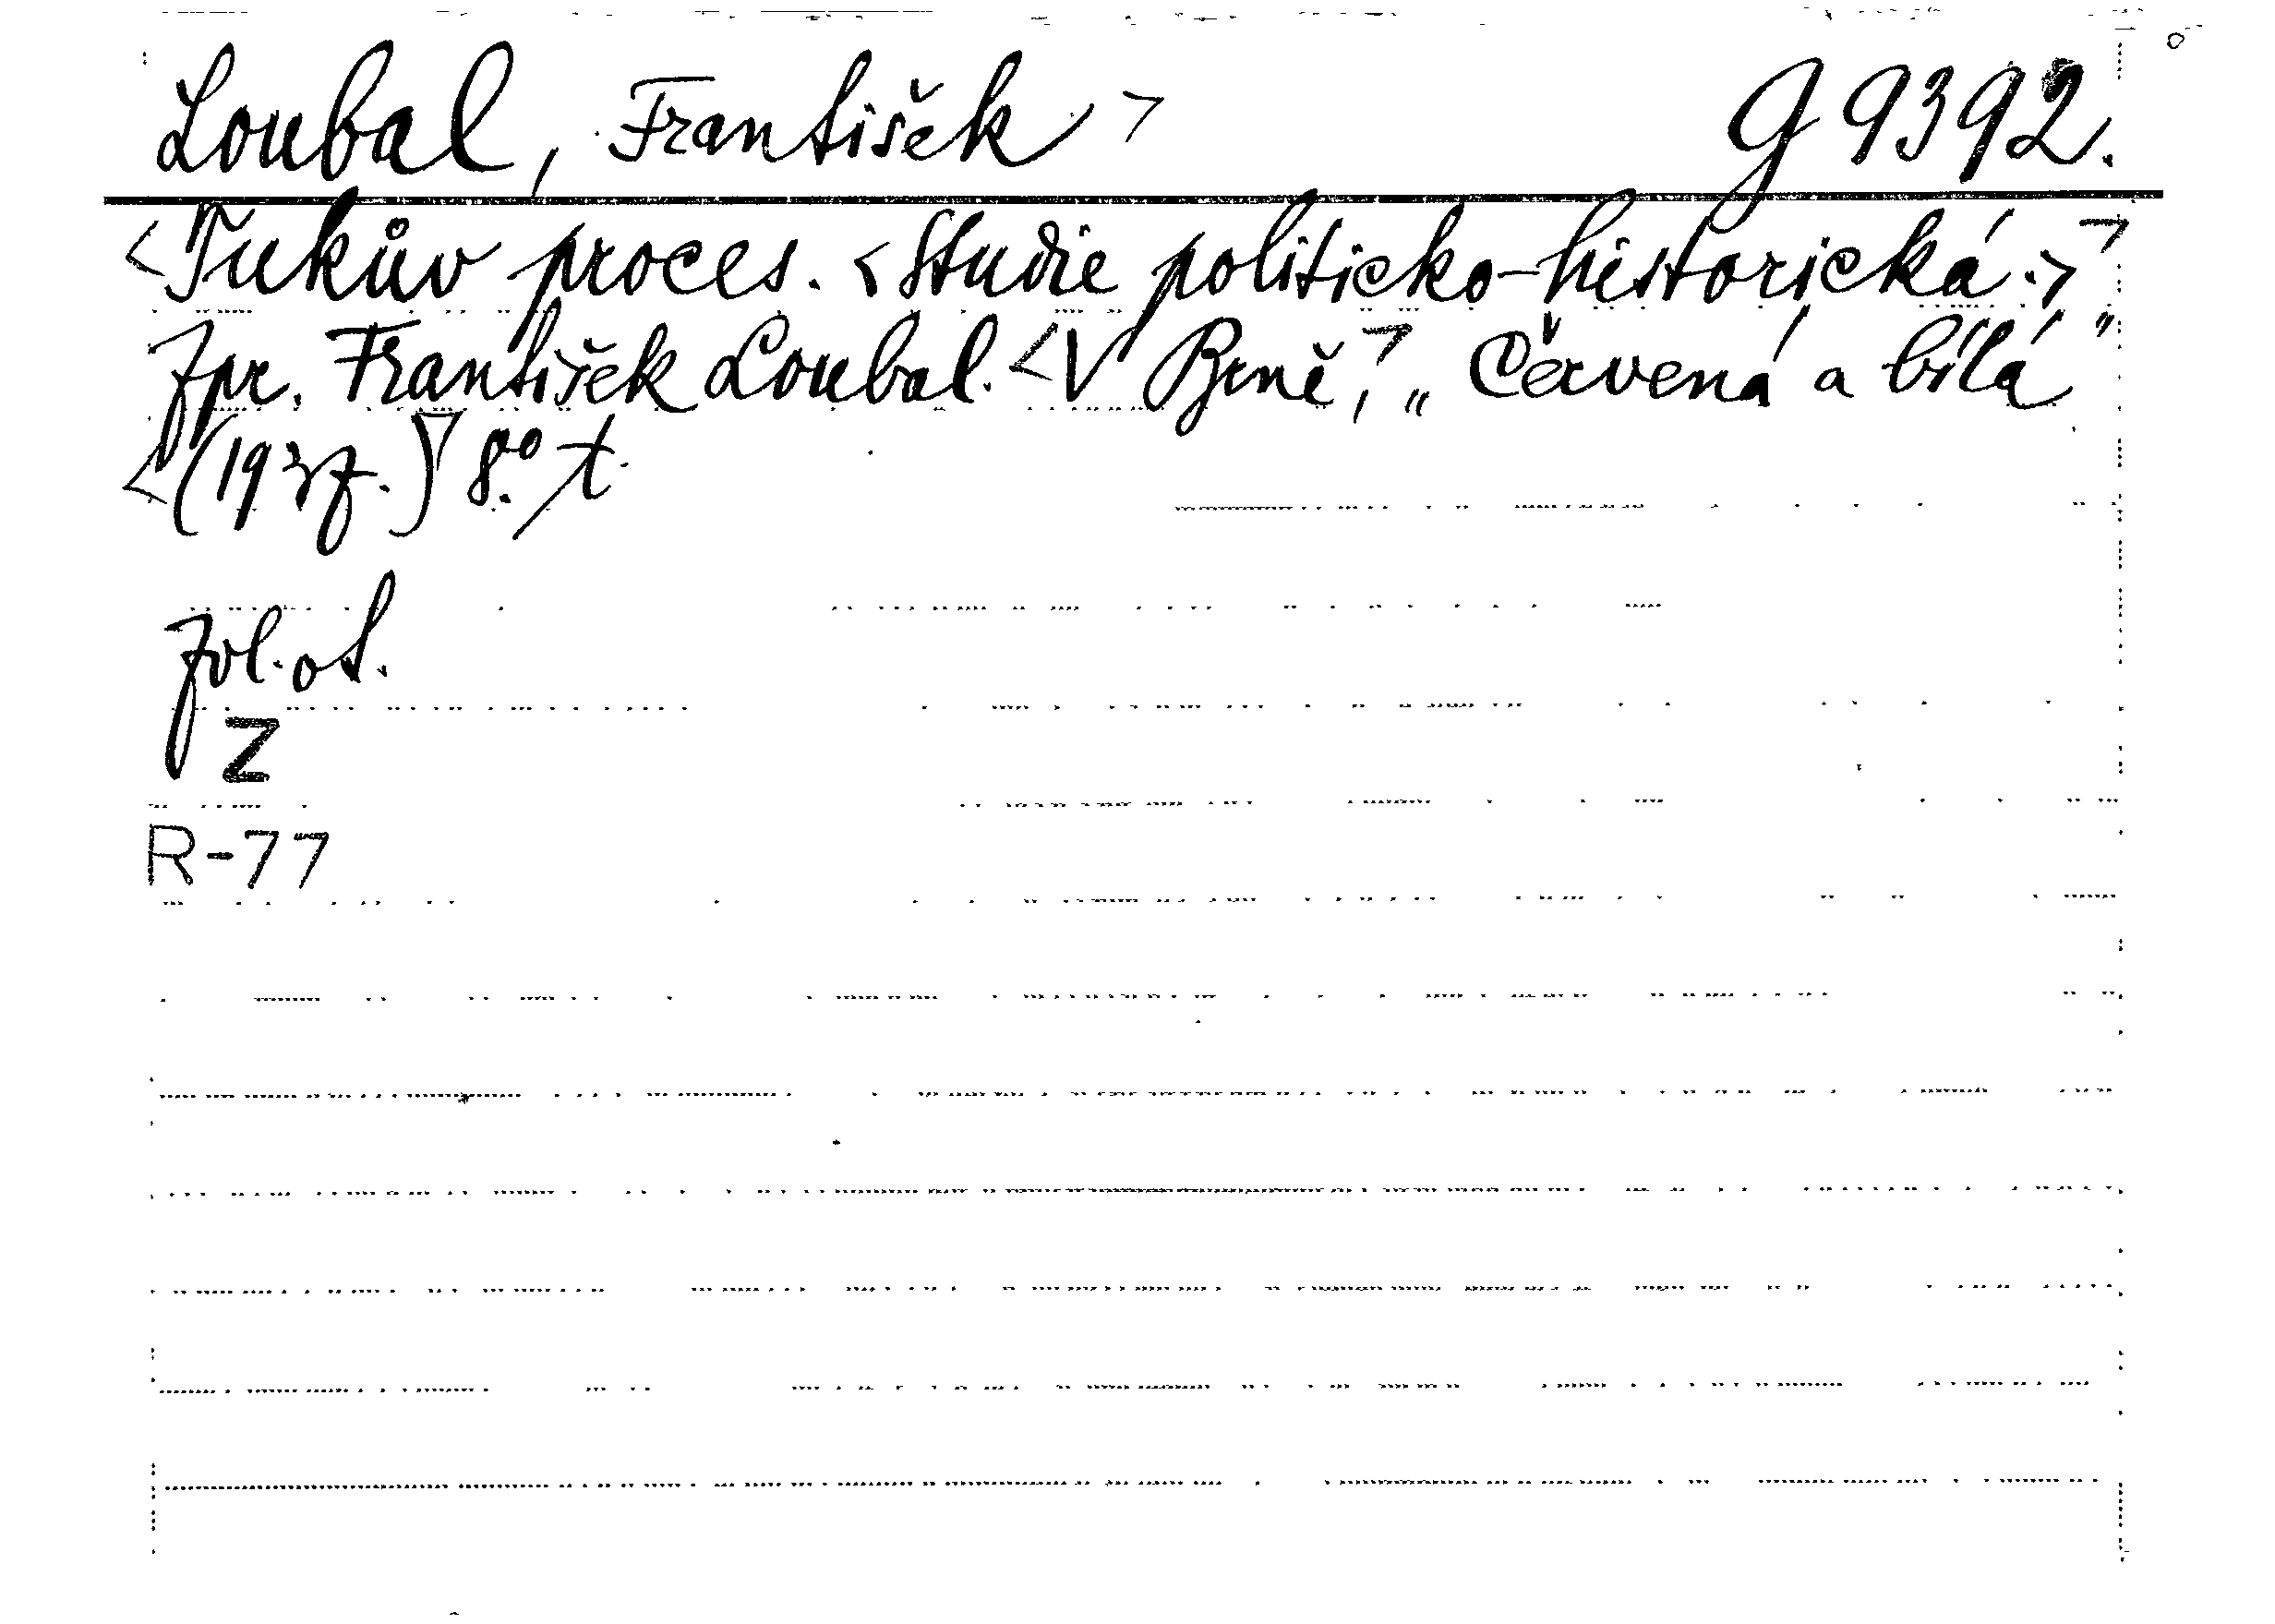 Loubal, František > G 9392.
<Tukův proces. <Studie politicko-historická.>>
Zpr. František Loubal. <V Brně,> „Červená a bílá"
<(193z.)> 8.° t.
Zvl. ot.
Z
R-77